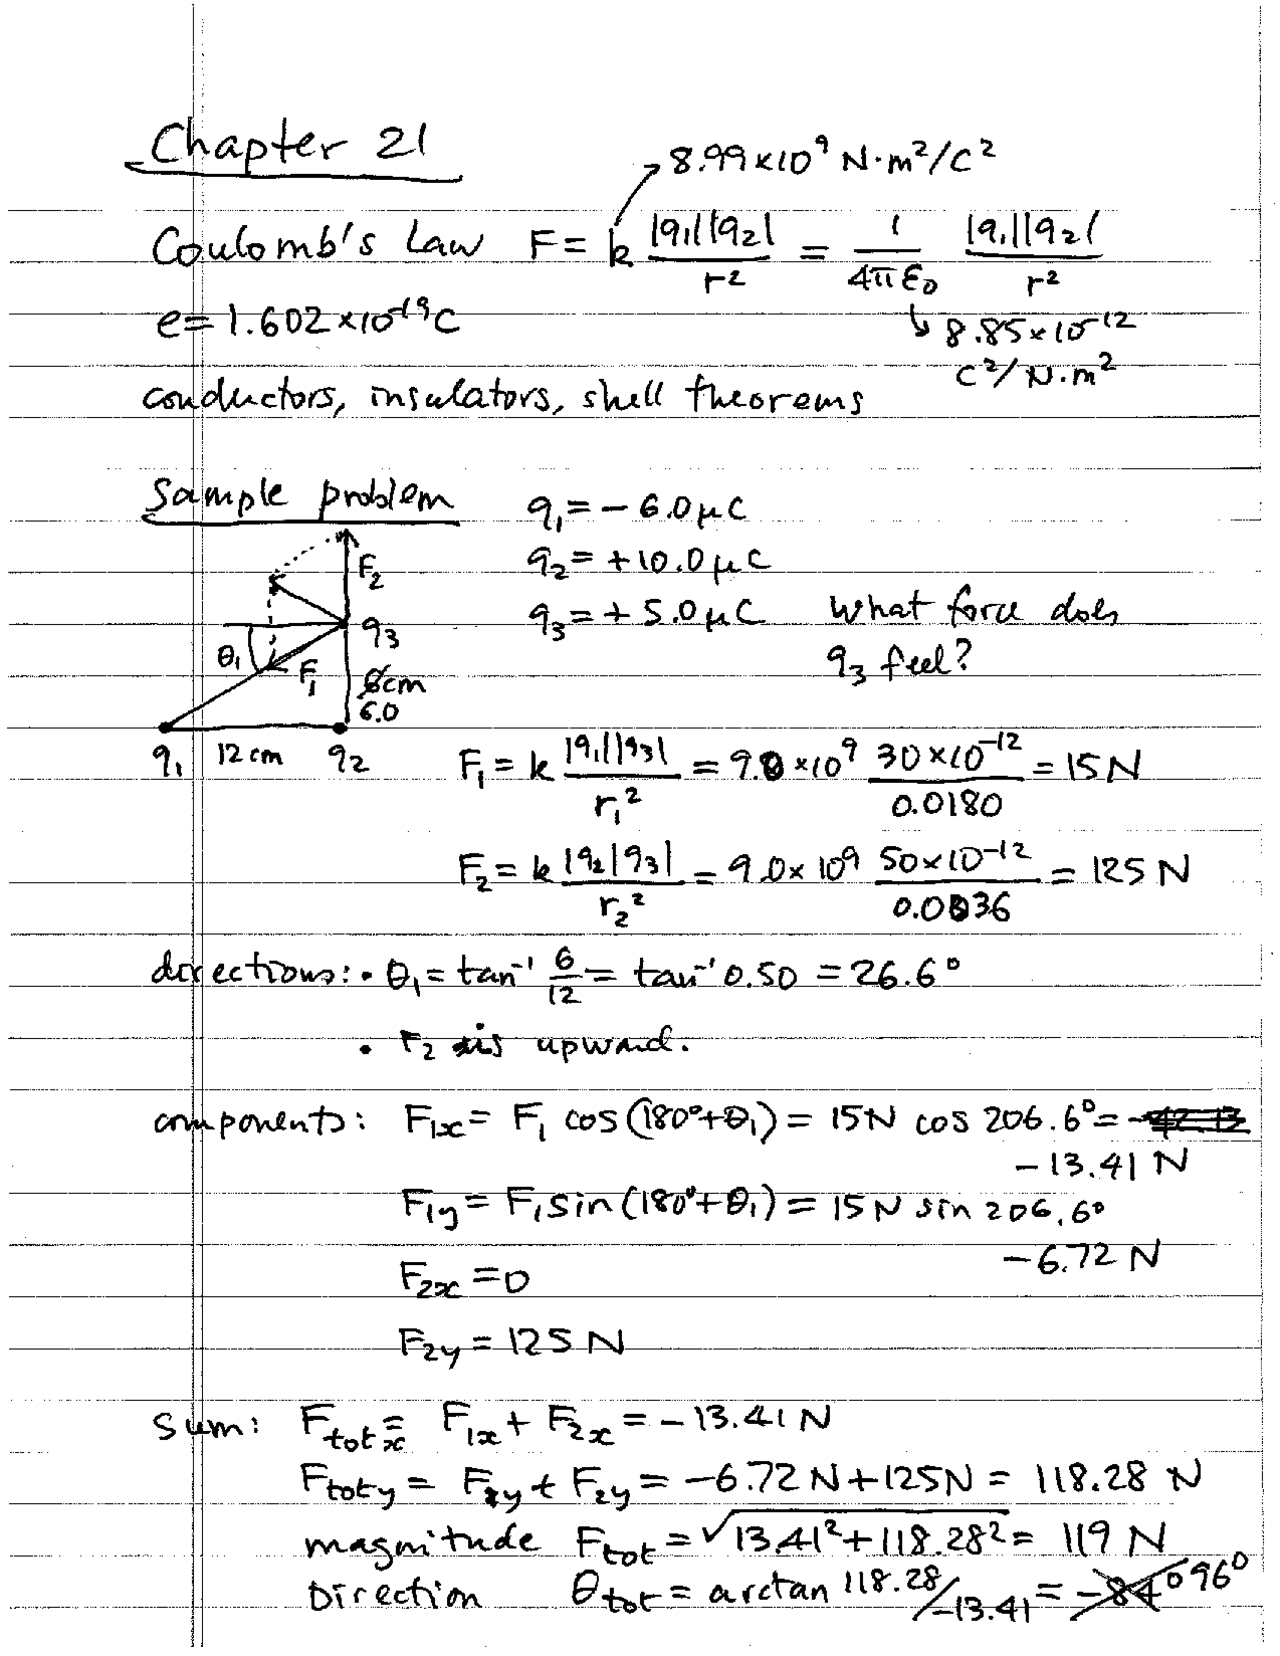 Chapter 21
8.99×10⁹ N·m²/C²
Coulomb's Law F = k |q₁||q₂| / r² = 1 / 4πε₀ |q₁||q₂| / r²
e = 1.602×10⁻¹⁹C
8.85×10⁻¹²
C²/N·m²
conductors, insulators, shell theorems
Sample problem
q₁ = -6.0 μC
q₂ = +10.0 μC
q₃ = +5.0 μC What force does
q₃ feel?
F₂
q₃
θ₁
F₁
cm
6.0
q₁ 12 cm q₂
F₁ = k |q₁||q₃| / r₁² = 9.0×10⁹ 30×10⁻¹² / 0.0180 = 15 N
F₂ = k |q₂|q₃| / r₂² = 9.0×10⁹ 50×10⁻¹² / 0.0036 = 125 N
directions: • θ₁ = tan⁻¹ 6/12 = tan⁻¹ 0.50 = 26.6°
• F₂ is upward.
components: F₁ₓ = F₁ cos(180°+θ₁) = 15N cos 206.6° =
-13.41 N
F₁y = F₁ sin(180°+θ₁) = 15N sin 206.6°
-6.72 N
F₂ₓ = 0
F₂y = 125 N
Sum: Ftotₓ = F₁ₓ + F₂ₓ = -13.41 N
Ftoty = F₁y + F₂y = -6.72 N + 125N = 118.28 N
magnitude Ftot = √13.41² + 118.28² = 119 N
Direction θtot = arctan 118.28/-13.41 = -84° 96°